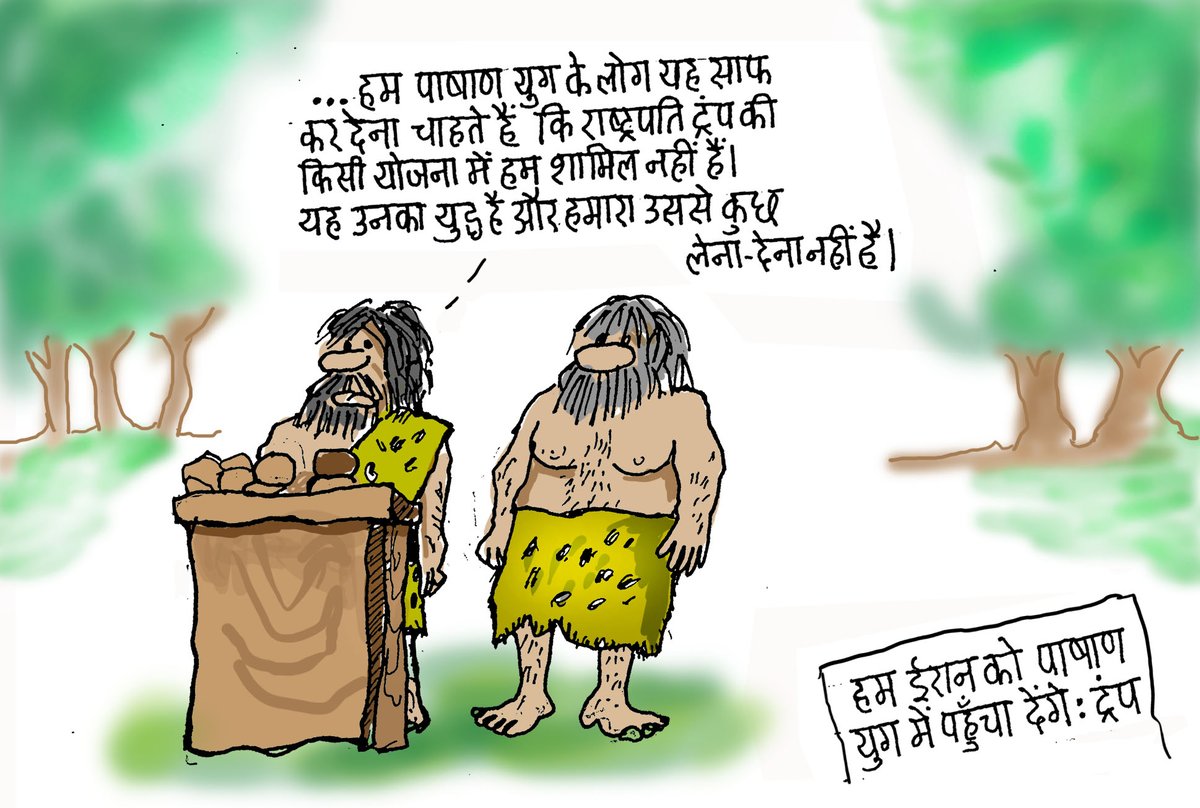 ...हम पाषाण युग के लोग यह साफ
कर देना चाहते हैं कि राष्ट्रपति ट्रंप की
किसी योजना में हम शामिल नहीं हैं।
यह उनका युद्ध है और हमारा उससे कुछ
लेना-देना नहीं है।
हम ईरान को पाषाण
युग में पहुँचा देंगे: ट्रंप